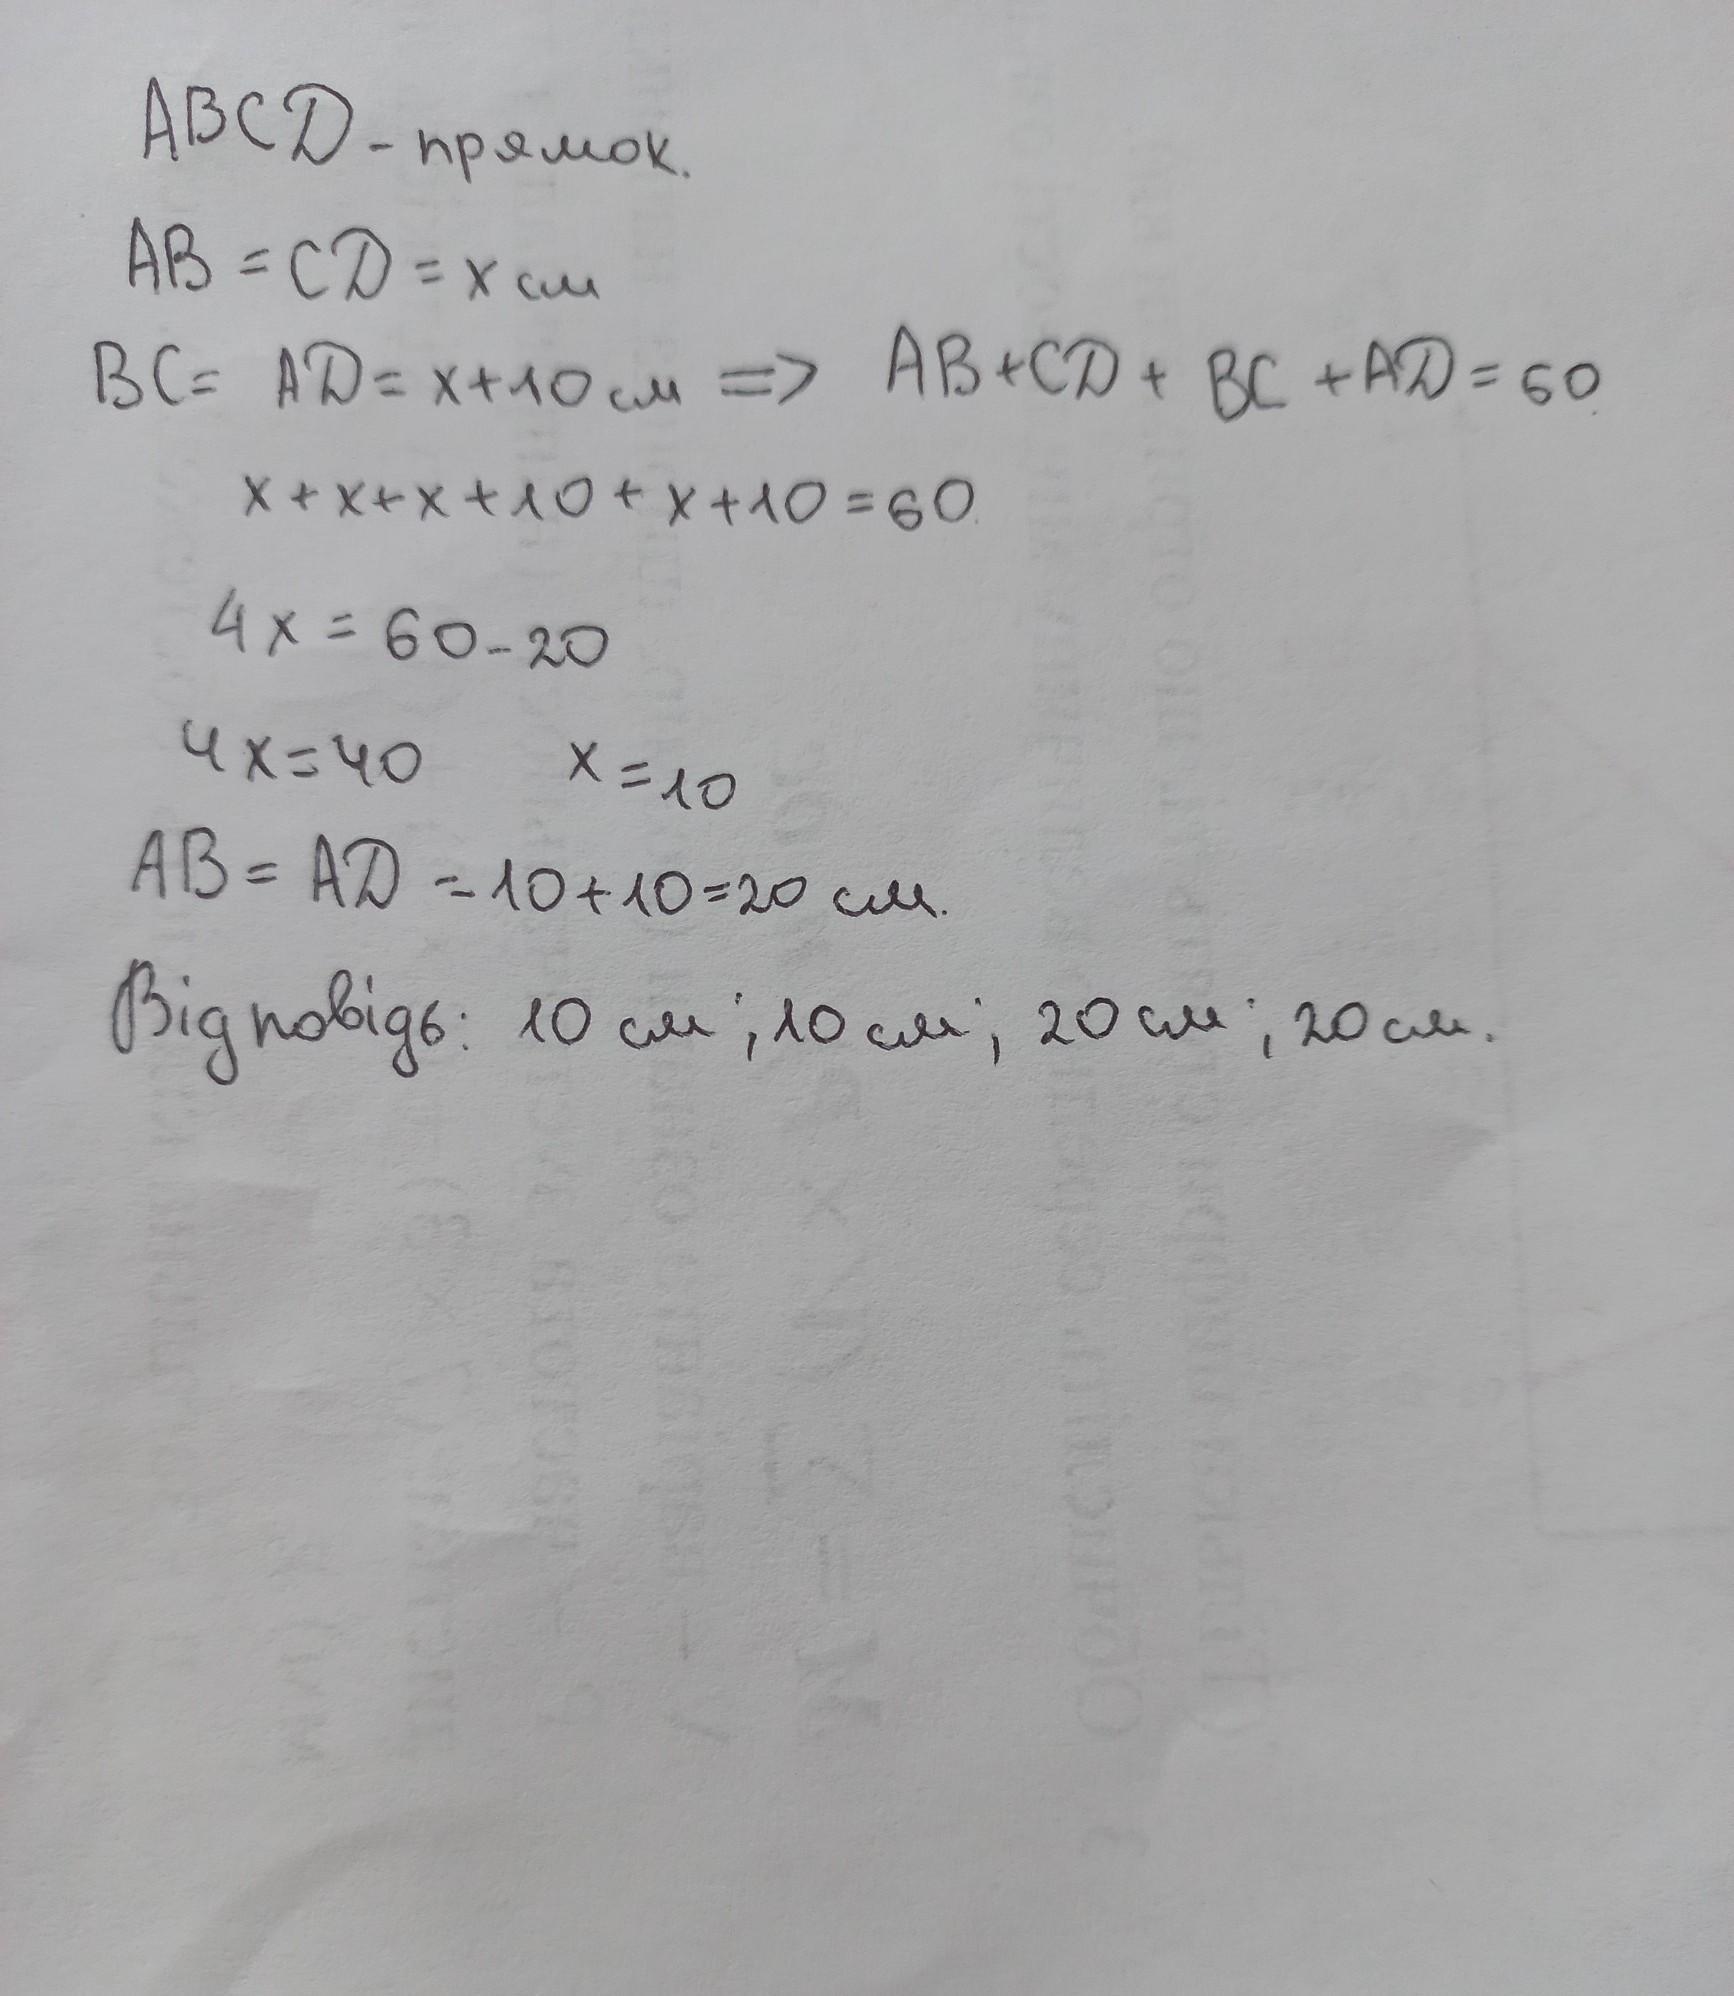 ABCD - прямок.
AB = CD = x см
BC = AD = x + 10 см => AB + CD + BC + AD = 60
x + x + x + 10 + x + 10 = 60
4x = 60 - 20
4x = 40 x = 10
AB = AD = 10 + 10 = 20 см.
Відповідь: 10 см; 10 см; 20 см; 20 см.